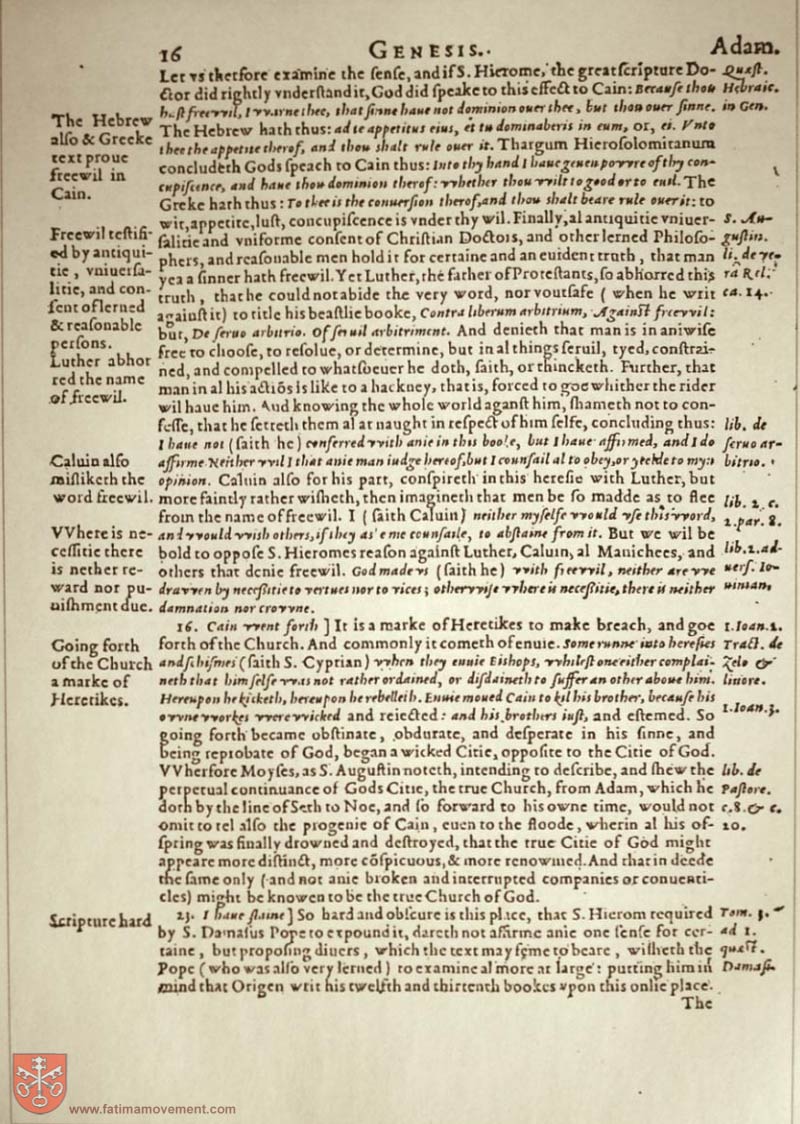 16 GENESIS.. Adam.
Let vs therfore examine the ſenſe, and if S. Hierome, the great ſcripture Do-
ctor did rightly vnderſtand it, God did ſpeake to this effect to Cain: Becauſe thou
haſt freevvil, I vvarne thee, that ſinne haue not dominion ouer thee, but thou ouer ſinne.
The Hebrew hath thus: ad te appetitus eius, et tu dominaberis in eum, or, ei. Vnto
thee the appetite therof, and thou shalt rule ouer it. Thargum Hieroſolomitanum
concludeth Gods ſpeach to Cain thus: Into thy hand I haue geuen povvre of thy con-
cupiſcence, and haue thou dominion therof: vvhether thou vvilt to good or to euil. The
Greke hath thus: To thee is the conuerſion therof, and thou shalt beare rule ouer it: to
wit, appetite, luſt, concupiſcence is vnder thy wil. Finally, al antiquitie vniuer-
ſalitie and vniforme conſent of Chriſtian Doctors, and other lerned Philoſo-
phers, and reaſonable men hold it for certaine and an euident truth, that man
yea a ſinner hath freewil. Yet Luther, the father of Proteſtants, ſo abhorred this
truth, that he could not abide the very word, nor voutſafe (when he writ
againſt it) to title his beaſtlie booke, Contra liberum arbitrium, Againſt freevvil:
but, De ſeruo arbitrio. Of ſeruil arbitriment. And denieth that man is in aniwiſe
free to chooſe, to reſolue, or determine, but in al things ſeruil, tyed, conſtrai-
ned, and compelled to whatſoeuer he doth, ſaith, or thincketh. Further, that
man in al his actiõs is like to a hackney, that is, forced to goe whither the rider
wil haue him. And knowing the whole world aganſt him, shameth not to con-
feſſe, that he ſetteth them al at naught in reſpect of him ſelfe, concluding thus:
I haue not (ſaith he) conferred vvith anie in this booke, but I haue affirmed, and I do
affirme. Neither vvil I that anie man iudge hereof, but I counſail al to obey, or yeelde to my
opinion. Caluin alſo for his part, conſpireth in this hereſie with Luther, but
more faintly rather wisheth, then imagineth that men be ſo madde as to flee
from the name of freewil. I (ſaith Caluin) neither myſelfe vvould vſe this vvord,
and vvould vvish others, if they aske me counſaile, to abſtaine from it. But we wil be
bold to oppoſe S. Hieromes reaſon againſt Luther, Caluin, al Manichees, and
others that denie freewil. God made vs (ſaith he) vvith freevvil, neither are vve
dravven by neceſſitie to vertues nor to vices; othervviſe vvhere is neceſſitie, there is neither
damnation nor crovvne.
16. Cain vvent forth] It is a marke of Heretikes to make breach, and goe
forth of the Church. And commonly it cometh of enuie. Some runne into hereſies
and ſchiſmes (ſaith S. Cyprian) vvhen they enuie Bishops, vvhileſt one either complai-
neth that himſelfe vvas not rather ordained, or diſdaineth to ſuffer an other aboue him.
Hereupon he kicketh, hereupon he rebelleth. Enuie moued Cain to kil his brother, becauſe his
ovvne vvorkes vvere vvicked and reiected: and his brothers iuſt, and eſtemed. So
going forth became obſtinate, obdurate, and deſperate in his ſinne, and
being reprobate of God, began a wicked Citie, oppoſite to the Citie of God.
VVherfore Moyſes, as S. Auguſtin noteth, intending to deſcribe, and shew the
perpetual continuance of Gods Citie, the true Church, from Adam, which he
doth by the line of Seth to Noe, and ſo forward to his owne time, would not
omit to tel alſo the progenie of Cain, euen to the floode, wherin al his of-
ſpring was finally drowned and deſtroyed, that the true Citie of God might
appeare more diſtinct, more cõſpicuous, & more renowmed. And that in deede
the ſame only (and not anie broken and interrupted companies or conuenti-
cles) might be knowen to be the true Church of God.
23. I haue ſlaine] So hard and obſcure is this place, that S. Hierom required
by S. Damaſus Pope to expound it, dareth not affirme anie one ſenſe for cer-
taine, but propoſing diuers, which the text may ſeme to beare, wisheth the
Pope (who was alſo very lerned) to examine al more at large: putting him in
mind that Origen writ his twelfth and thirtenth bookes vpon this onlie place.
The
The Hebrew
alſo & Greeke
text proue
freewil in
Cain.
Freewil teſtifi-
ed by antiqui-
tie, vniuerſa-
litie, and con-
ſent of lerned
& reaſonable
perſons.
Luther abhor
red the name
of freewil.
Caluin alſo
miſliketh the
word freewil.
VVhere is ne-
ceſſitie there
is nether re-
ward nor pu-
nishment due.
Going forth
of the Church
a marke of
Heretikes.
Scripture hard
Quæſt.
Hebraic.
in Gen.
S. Au-
guſtin.
li. de ve-
ra Rel.
ca. 14.
lib. de
ſeruo ar-
bitrio.
lib. 2. c.
2. par. 8.
lib. 2. ad-
uerſ. Io-
uinian.
1. Ioan. 2.
Tract. de
Zelo &
liuore.
1. Ioan. 3.
lib. de
Paſtore.
c. 8. & c.
20.
Tom. 3.
ad 1.
quæſt.
Damaſi.
www.fatimamovement.com